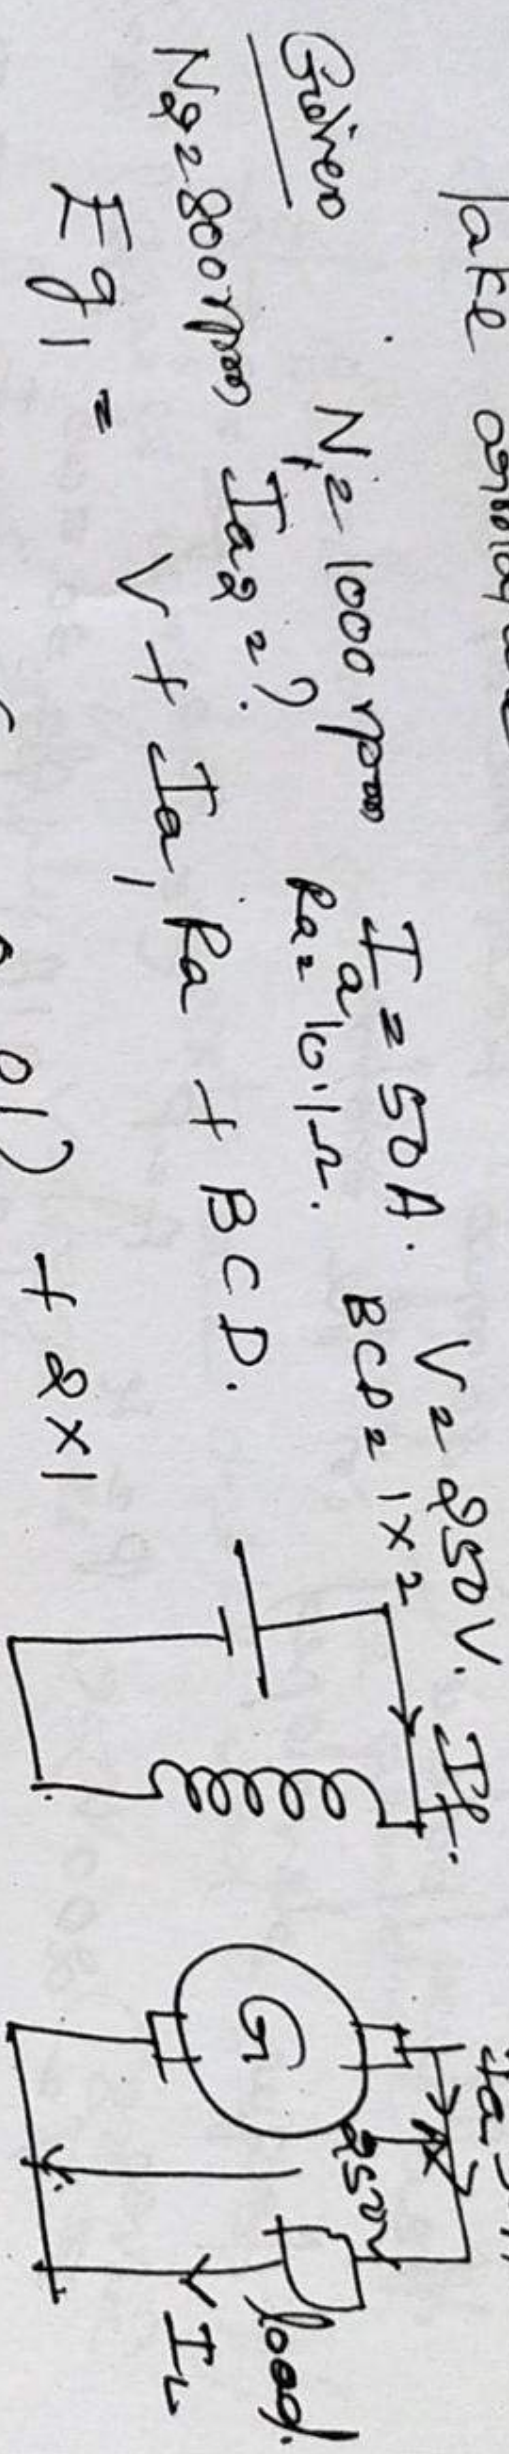 Take
Given N1 = 1000 rpm Ia = 50A. V = 250V.
N2 = 800 rpm Ia2 = ? Ra = 0.1Ω. BCD = 1×2
Eg1 = V + Ia1 Ra + BCD.
0.1) + 2×1
If.
G
250V
load.
IL